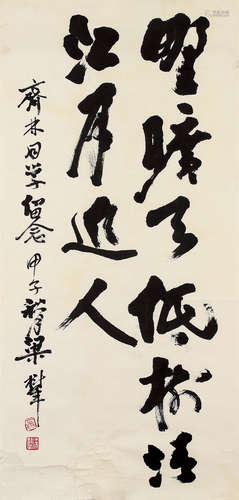 野旷天低树 江
江月近人
齐林同学留念 甲子秋月 梁